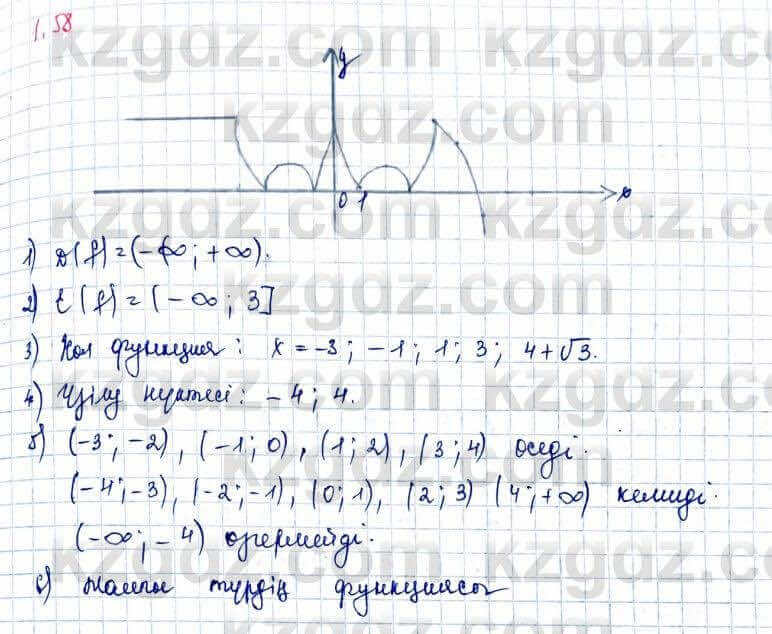 1.58
y
0 1 x
1) D(f) = (-∞; +∞).
2) E(f) = (-∞; 3]
3) Нөл функция: x = -3; -1; 1; 3; 4+√3.
4) Үзілу нүктесі: -4; 4.
5) (-3; -2), (-1; 0), (1; 2), (3; 4) өседі.
(-4; -3), (-2; -1), (0; 1), (2; 3) (4; +∞) кемиді.
(-∞; -4) өзгермейді.
6) Жалпы түрдің функциясы
kzgdz.com